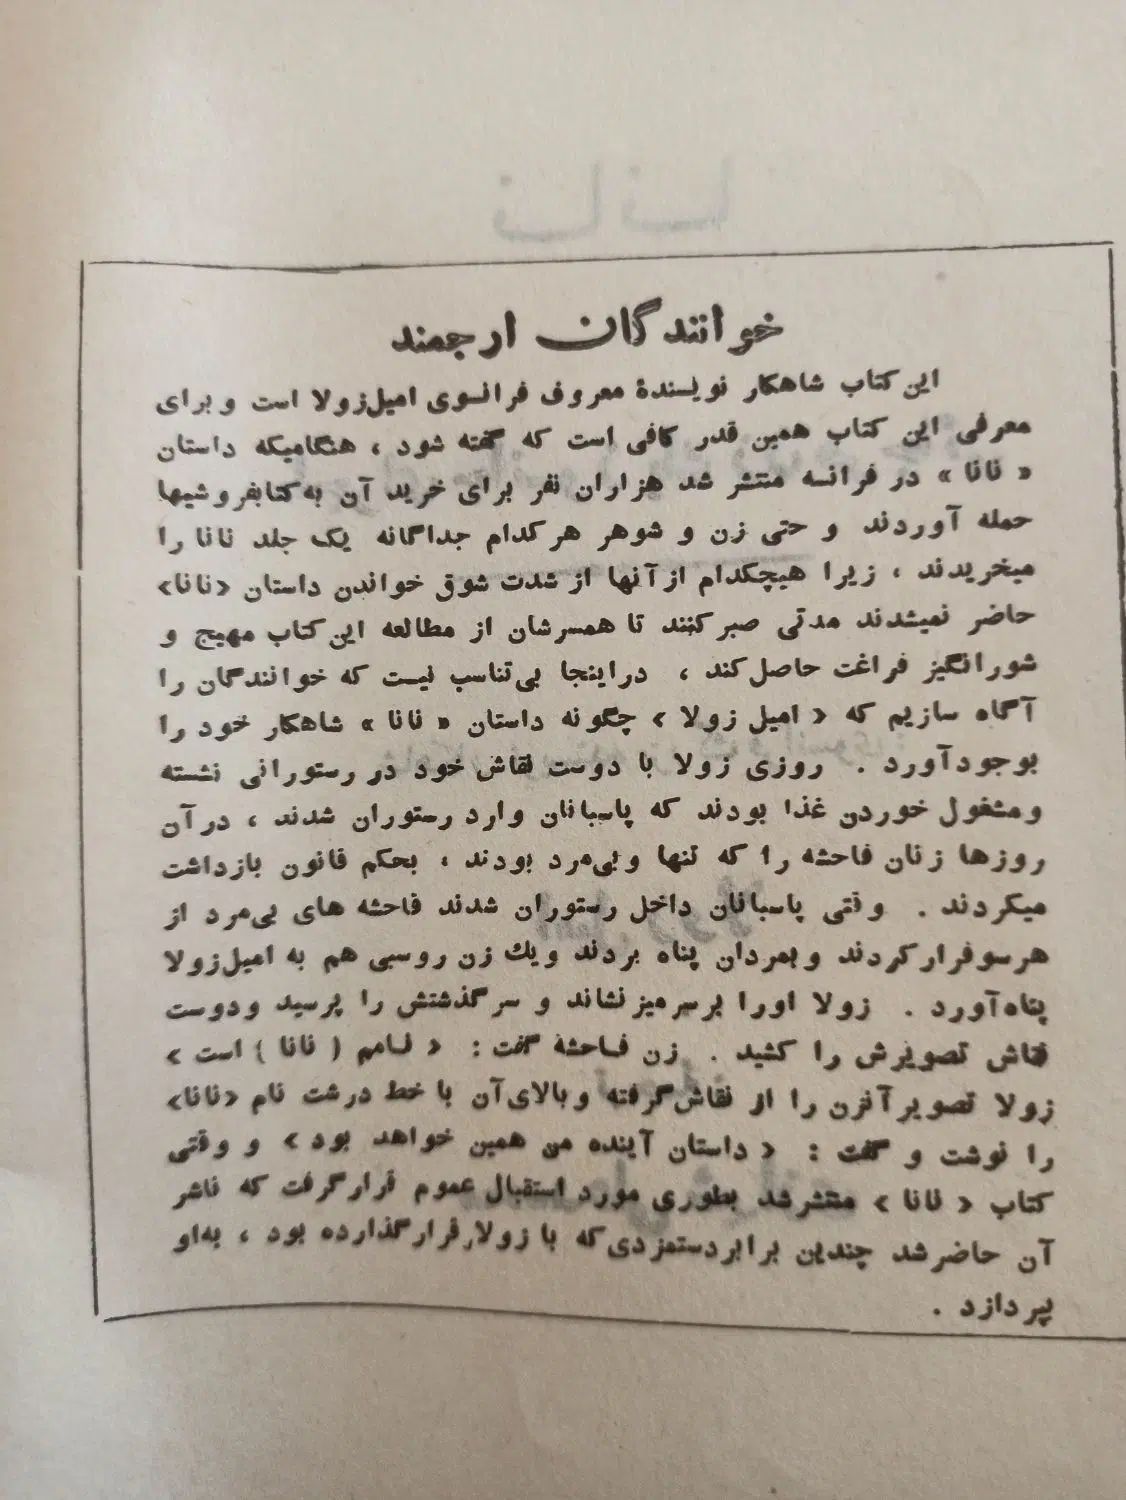 خوانندگان ارجمند
این کتاب شاهکار نویسندهٔ معروف فرانسوی امیل‌زولا است و برای
معرفی این کتاب همین قدر کافی است که گفته شود ، هنگامیکه داستان
« نانا » در فرانسه منتشر شد هزاران نفر برای خرید آن به‌کتابفروشیها
حمله آوردند و حتی زن و شوهر هر کدام جداگانه یک جلد نانا را
میخریدند ، زیرا هیچکدام از آنها از شدت شوق خواندن داستان «نانا»
حاضر نمیشدند مدتی صبر کنند تا همسرشان از مطالعه این کتاب مهیج و
شورانگیز فراغت حاصل کند ، دراینجا بی‌تناسب نیست که خوانندگان را
آگاه سازیم که « امیل زولا » چگونه داستان « نانا » شاهکار خود را
بوجود آورد . روزی زولا با دوست نقاش خود در رستورانی نشسته
و مشغول خوردن غذا بودند که پاسبانان وارد رستوران شدند ، در آن
روزها زنان فاحشه را که تنها و بی‌مرد بودند ، بحکم قانون بازداشت
میکردند . وقتی پاسبانان داخل رستوران شدند فاحشه های بی‌مرد از
هرسو فرار کردند و بمردان پناه بردند و یك زن روسبی هم به امیل‌زولا
پناه‌آورد . زولا اورا بر سر میز نشاند و سرگذشتش را پرسید ودوست
نقاش تصویرش را کشید . زن فاحشهٔ گفت : « نامم ( نانا ) است »
زولا تصویر آنزن را از نقاش گرفته و بالای آن با خط درشت نام «نانا»
را نوشت و گفت : « داستان آینده من همین خواهد بود » و وقتی
کتاب « نانا » منتشر شد بطوری مورد استقبال عموم قرار گرفت که ناشر
آن حاضر شد چندین برابر دستمزدی که با زولا قرار گذارده بود ، به‌او
بپردازد .